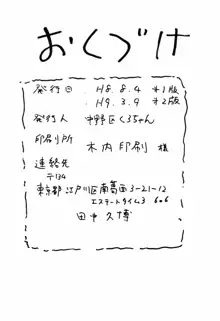 おくづけ
発行日 H8.8.4 オ1版
H9.3.9 オ2版
発行人 中野区くろちゃん
印刷所 木内印刷 様
連絡先
〒134
東京都江戸川区南葛西3-21-12
エステートタイム3 606
田中久博